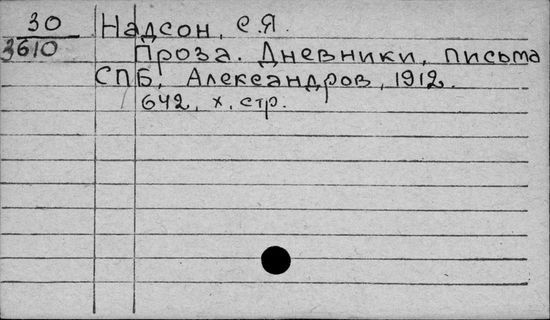 30 Надсон, С.Я.
3610 Проза. Дневники, письма
СПБ, Александров, 1912.
642, х, стр.